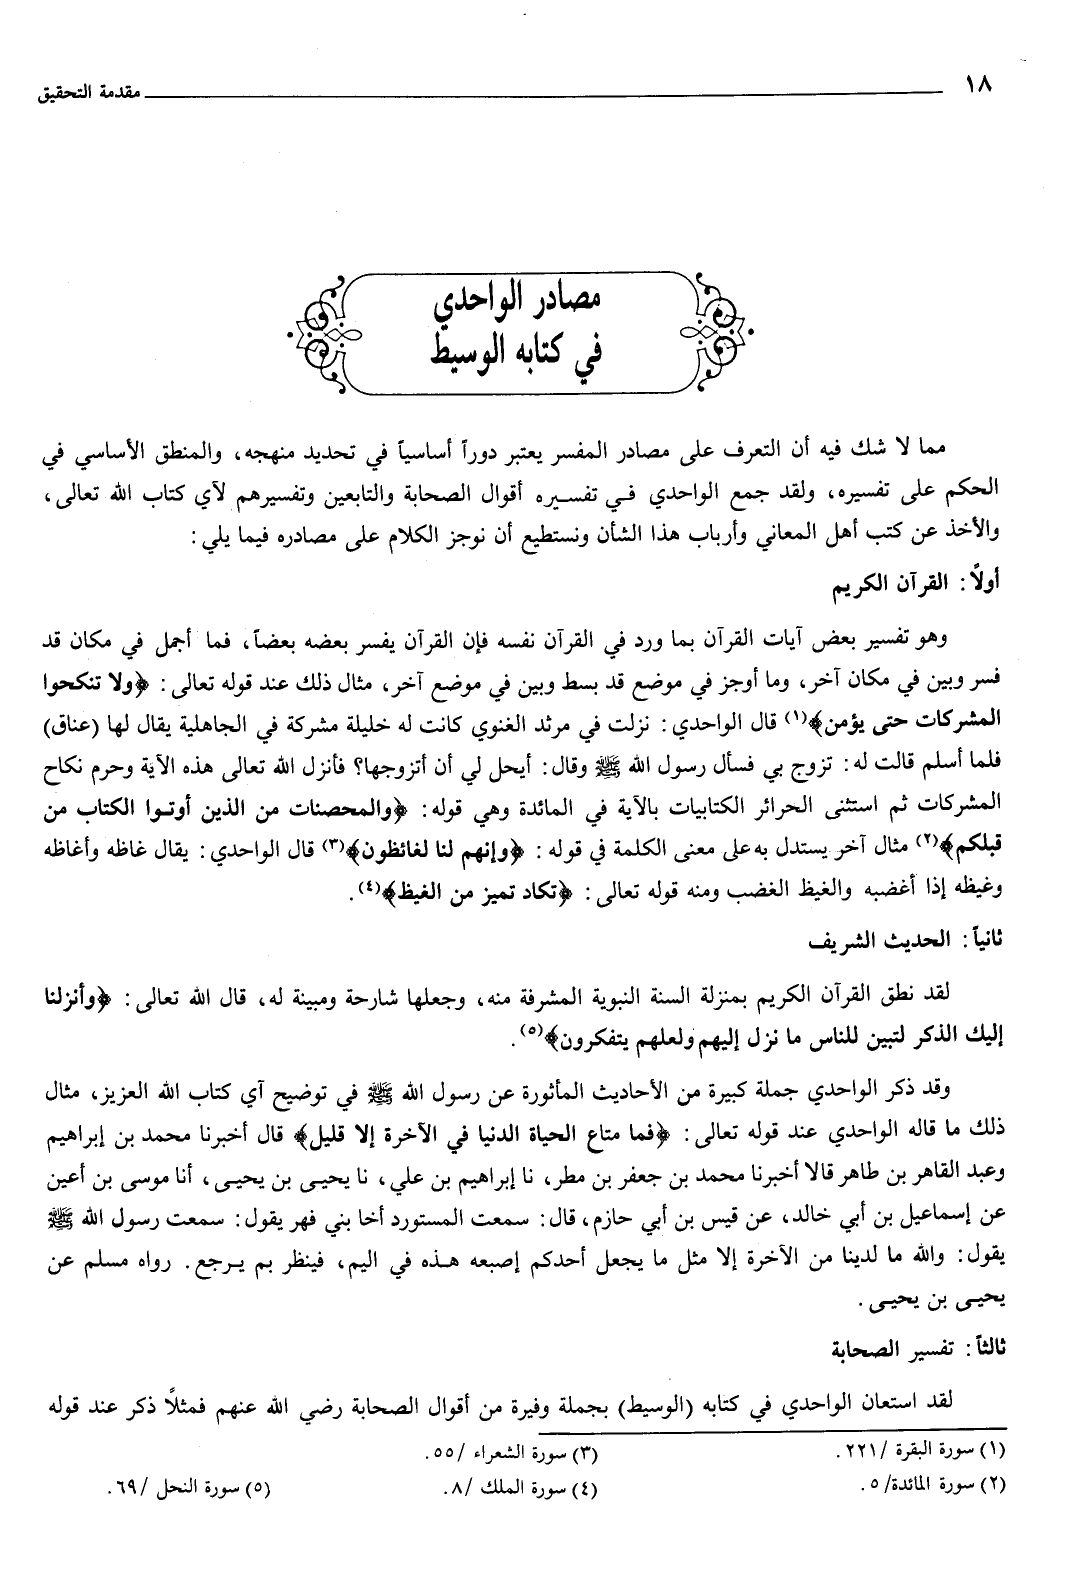 ١٨ مقدمة التحقيق
مصادر الواحدي
في كتابه الوسيط
مما لا شك فيه أن التعرف على مصادر المفسر يعتبر دوراً أساسياً في تحديد منهجه، والمنطق الأساسي في
الحكم على تفسيره، ولقد جمع الواحدي في تفسيره أقوال الصحابة والتابعين وتفسيرهم لآي كتاب الله تعالى،
والأخذ عن كتب أهل المعاني وأرباب هذا الشأن ونستطيع أن نوجز الكلام على مصادره فيما يلي:
أولاً: القرآن الكريم
وهو تفسير بعض آيات القرآن بما ورد في القرآن نفسه فإن القرآن يفسر بعضه بعضاً، فما أجمل في مكان قد
فسر وبين في مكان آخر، وما أوجز في موضع قد بسط وبين في موضع آخر، مثال ذلك عند قوله تعالى: ﴿ولا تنكحوا
المشركات حتى يؤمن﴾(١) قال الواحدي: نزلت في مرثد الغنوي كانت له خليلة مشركة في الجاهلية يقال لها (عناق)
فلما أسلم قالت له: تزوج بي فسأل رسول الله ﷺ وقال: أيحل لي أن أتزوجها؟ فأنزل الله تعالى هذه الآية وحرم نكاح
المشركات ثم استثنى الحرائر الكتابيات بالآية في المائدة وهي قوله: ﴿والمحصنات من الذين أوتوا الكتاب من
قبلكم﴾(٢) مثال آخر يستدل به على معنى الكلمة في قوله: ﴿وإنهم لنا لغائظون﴾(٣) قال الواحدي: يقال غاظه وأغاظه
وغيظه إذا أغضبه والغيظ الغضب ومنه قوله تعالى: ﴿تكاد تميز من الغيظ﴾(٤).
ثانياً: الحديث الشريف
لقد نطق القرآن الكريم بمنزلة السنة النبوية المشرفة منه، وجعلها شارحة ومبينة له، قال الله تعالى: ﴿وأنزلنا
إليك الذكر لتبين للناس ما نزل إليهم ولعلهم يتفكرون﴾(٥).
وقد ذكر الواحدي جملة كبيرة من الأحاديث المأثورة عن رسول الله ﷺ في توضيح آي كتاب الله العزيز، مثال
ذلك ما قاله الواحدي عند قوله تعالى: ﴿فما متاع الحياة الدنيا في الآخرة إلا قليل﴾ قال أخبرنا محمد بن إبراهيم
وعبد القاهر بن طاهر قالا أخبرنا محمد بن جعفر بن مطر، نا إبراهيم بن علي، نا يحيى بن يحيى، أنا موسى بن أعين
عن إسماعيل بن أبي خالد، عن قيس بن أبي حازم، قال: سمعت المستورد أخا بني فهر يقول: سمعت رسول الله ﷺ
يقول: والله ما لدينا من الآخرة إلا مثل ما يجعل أحدكم إصبعه هذه في اليم، فينظر بم يرجع. رواه مسلم عن
يحيى بن يحيى.
ثالثاً: تفسير الصحابة
لقد استعان الواحدي في كتابه (الوسيط) بجملة وفيرة من أقوال الصحابة رضي الله عنهم فمثلاً ذكر عند قوله
(١) سورة البقرة /٢٢١. (٣) سورة الشعراء /٥٥.
(٢) سورة المائدة/ ٥. (٤) سورة الملك /٨. (٥) سورة النحل /٦٩.